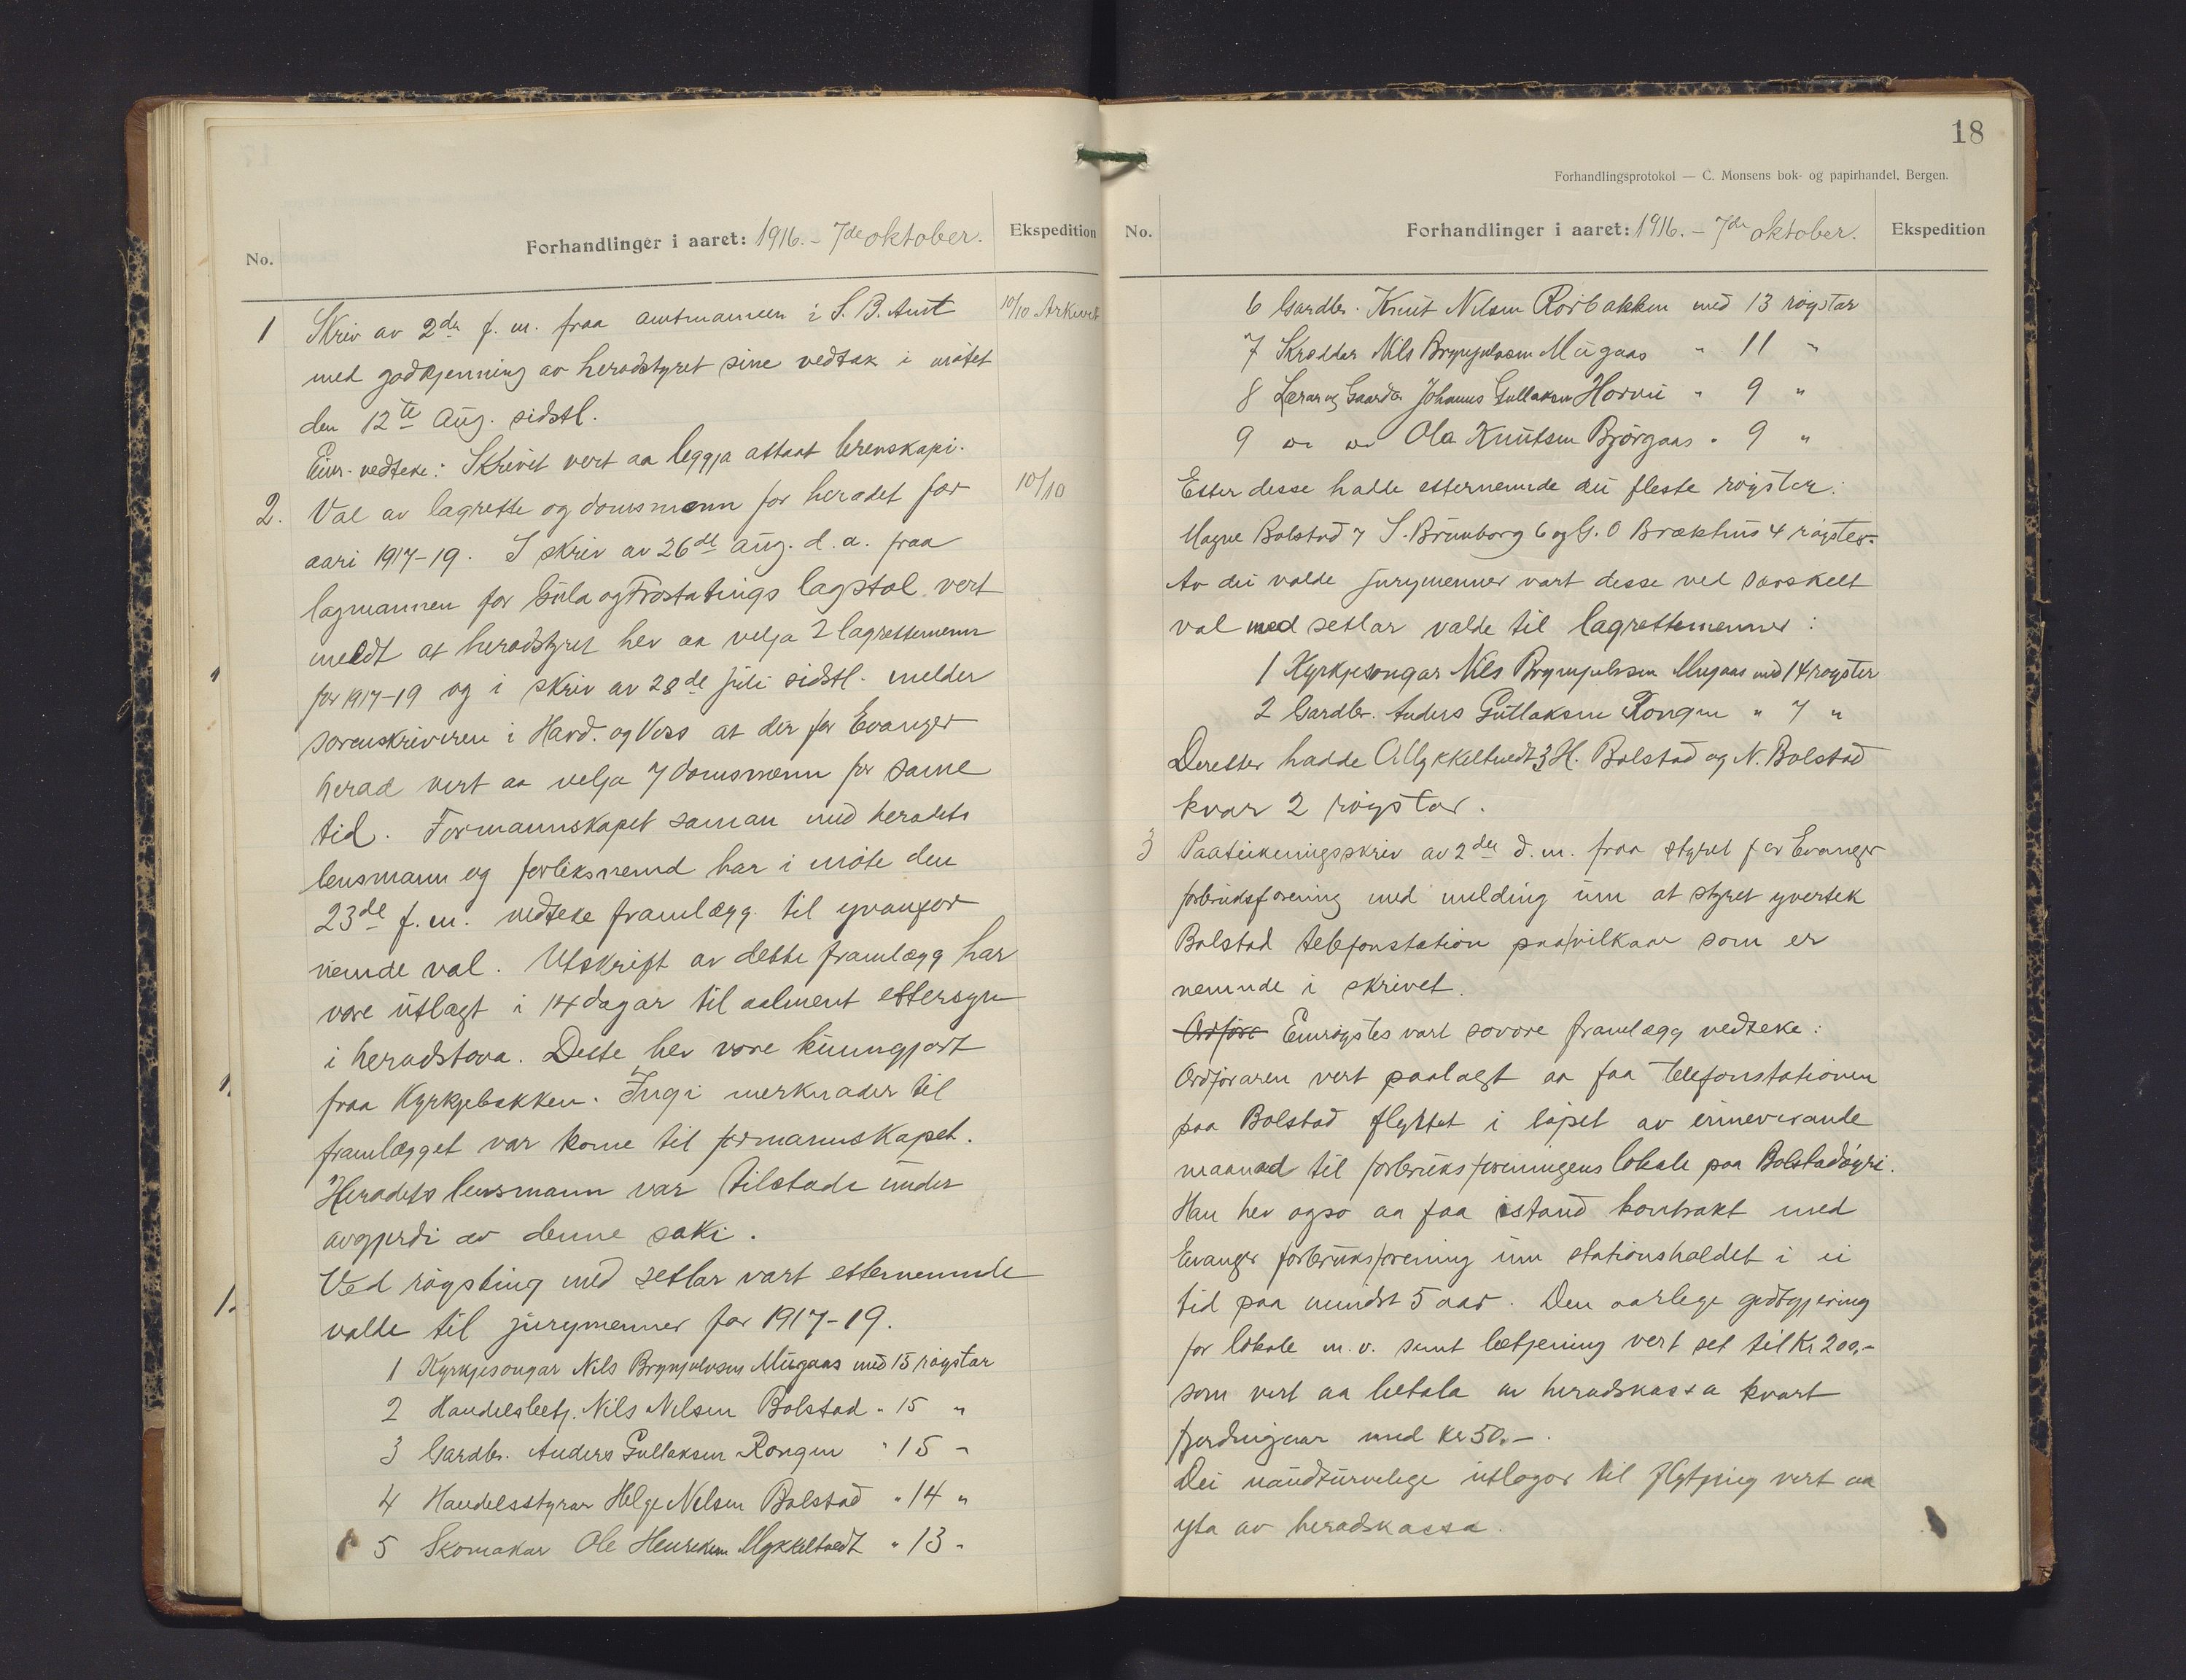 No.
Forhandlinger i aaret: 1916. - 7de oktober.
Ekspedition
1 Skriv av 2dr f. m. fraa amtmannen i S. B. Amt
10/10 Arkivet
med godkjenning av heradstyret sine vedtak i møtet
den 12te Aug. sidstl.
Einr. vedteke: Skrivet vert aa leggja attaat brevskapi.
2. Val av lagrette og domsmenn for heradet for
10/10
aari 1917-19. I skriv av 26de Aug. d. a. fraa
lagmannen for Gula og Frostatings lagstol vert
meldt at heradstyret hev aa velja 2 lagrettemenn
for 1917-19 og i skriv av 28de juli sidstl. melder
sorenskriveren i Hard. og Voss at der for Evanger
herad vert aa velja 7 domsmenn for same
tid. Formannskapet saman med heradets
lensmann og forliksnemd har i møte den
23de f. m. vedteke framlegg til yvanfor
nemde val. Utskrift av dette framlegg har
vore utlagt i 14 dagar til aalment ettersyn
i heradstova. Dette hev vore kunngjort
fraa Kyrkjebakken. Ingi merknader til
framlegget var kome til formannskapet.
Heradets lensmann var tilstade under
avgjerdi av denne saki.
Ved røysting med setlar vart etternemnde
valde til jurymenner for 1917-19.
1 Kyrkjesongar Nils Brynjulvsen Mugaas med 15 røystar
2 Handelsbetj. Nils Nilsen Bolstad " 15 "
3 Gardbr. Anders Gullaksen Rongen " 15 "
4 Handelsstyrar Helge Nilsen Bolstad " 14 "
5 Skomakar Ole Henriksen Mykkeltvedt " 13 "
18
Forhandlingsprotokol — C. Monsens bok- og papirhandel, Bergen.
No.
Forhandlinger i aaret: 1916. - 7de oktober.
Ekspedition
6 Gardbr. Knut Nilsen Rørbakken med 13 røystar
7 Skreddar Nils Brynjulvsen Mugaas " 11 "
8 Lærar og Gaardbr. Johannes Gullaksen Horvei " 9 "
9 do do Ola Knutsen Bjørgaas " 9 "
Etter desse hadde etternemnde dei fleste røystar:
Magne Bolstad 7 S. Brunborg 6 og G. O Brækhus 4 røyster.
Av dei valde jurymenner vart desse ved særskelt
val med setlar valde til lagrettemenner:
1 Kyrkjesongar Nils Brynjulvsen Mugaas med 14 røyster
2 Gardbr. Anders Gullaksen Rongen " 7 "
Deretter hadde O Mykkeltvedt 3 H. Bolstad og N. Bolstad
kvar 2 røystar.
3 Paateikningsskriv av 2den d. m. fraa styret for Evanger
forbruksforening med melding um at styret yvertek
Bolstad telefonstation paa vilkaar som er
nemnde i skrivet.
Ordføre Einrøystes vart sovore framlegg vedteke:
Ordføraren vert paalagt aa faa telefonstationen
paa Bolstad flyttet i løpet av inneverande
maanad til forbruksforeningens lokale paa Bolstadøyri.
Han hev ogso aa faa istand kontrakt med
Evanger forbruksforening um stationsholdet i ei
tid paa mindst 5 aar. Den aarlege godtgjering
for lokale m. v. samt betjening vert set til Kr 200,-
som vert aa betala av heradskassa kvart
fjerdingaar med kr 50.-.
Dei naudturvelege utlogor til flytjing vert aa
yta av heradskassa.